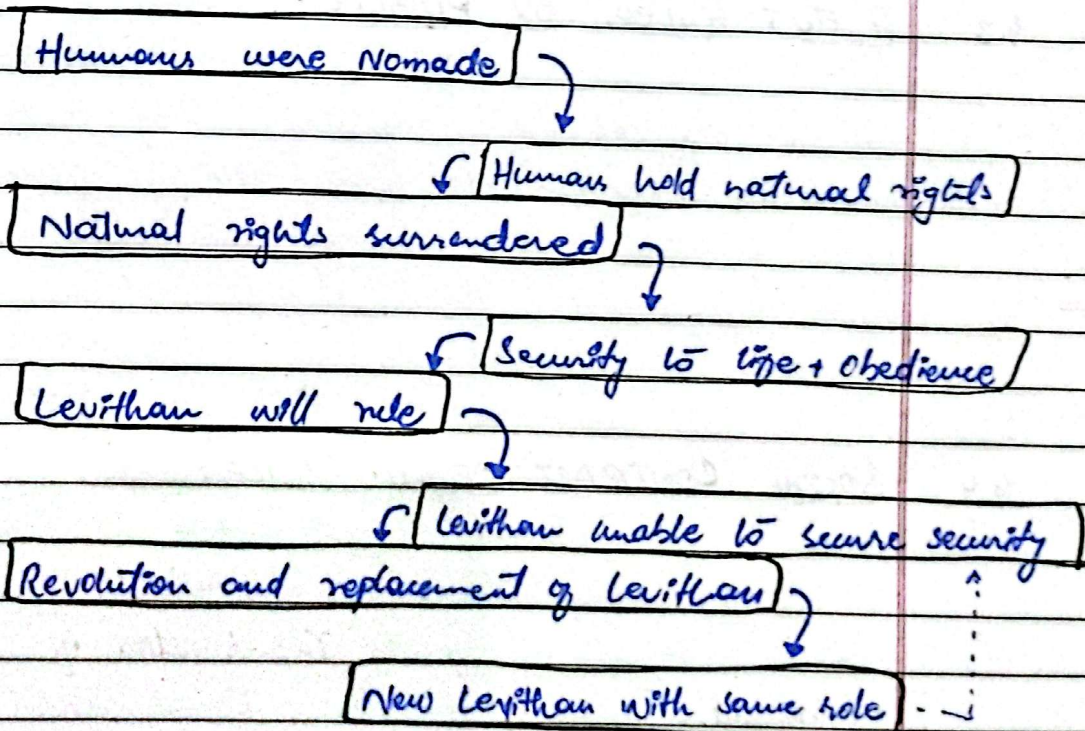 Humans were Nomade
Humans hold natural rights
Natural rights surrendered
Security to life + Obedience
Levithan will rule
Levithan unable to secure security
Revolution and replacement of Levithan
New Levithan with same role